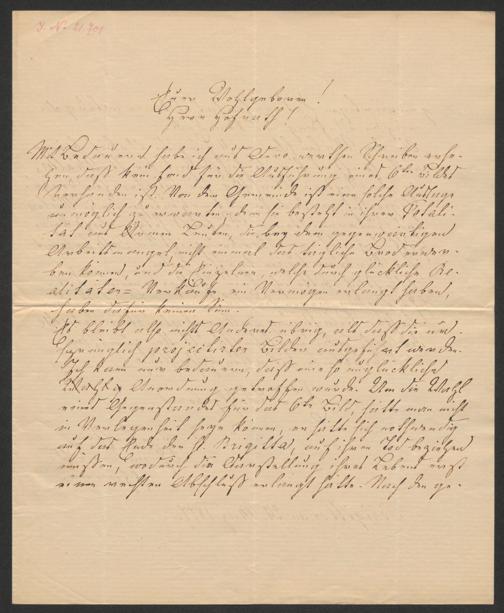 J. N. 21.701
Euer Wohlgeboren!
Herr Hofrath!
Mit Bedauern habe ich aus Dero werthen Schreiben erse-
hen daß kein Fond für die Ausführung eines 6ten Bildes
vorhanden ist. Von der Gemeinde ist eine solche Auslage
unmöglich zu erwarten, denn sie besteht in ihrer Totali-
tät aus Armen Leuten, die bey dem gegenwärtigen
Arbeitsmangel nicht einmal das tägliche Brod erwer-
ben können, und die Einzelnen, welche durch glückliche Re-
alitäten-Verkäufe ein Vermögen erlangt haben,
haben dafür keinen Sinn.
Es bleibt also nichts Anderes übrig, als daß die ur-
sprünglich projectirten Bilder ausgeführt werden.
Ich kann nur bedauern, daß eine so unglückliche
Anordnung getroffen wurde. Um die Wahl
eines Gegenstandes für das 6te Bild, hätte man nicht
in Verlegenheit seyn können, er hätte sich nothwendig
auf das Ende der St Brigitta, auf ihren Tod beziehen
müssen, wodurch die Darstellung ihres Lebens erst
einen rechten Abschluß erlangt hätte. Nach den ge-